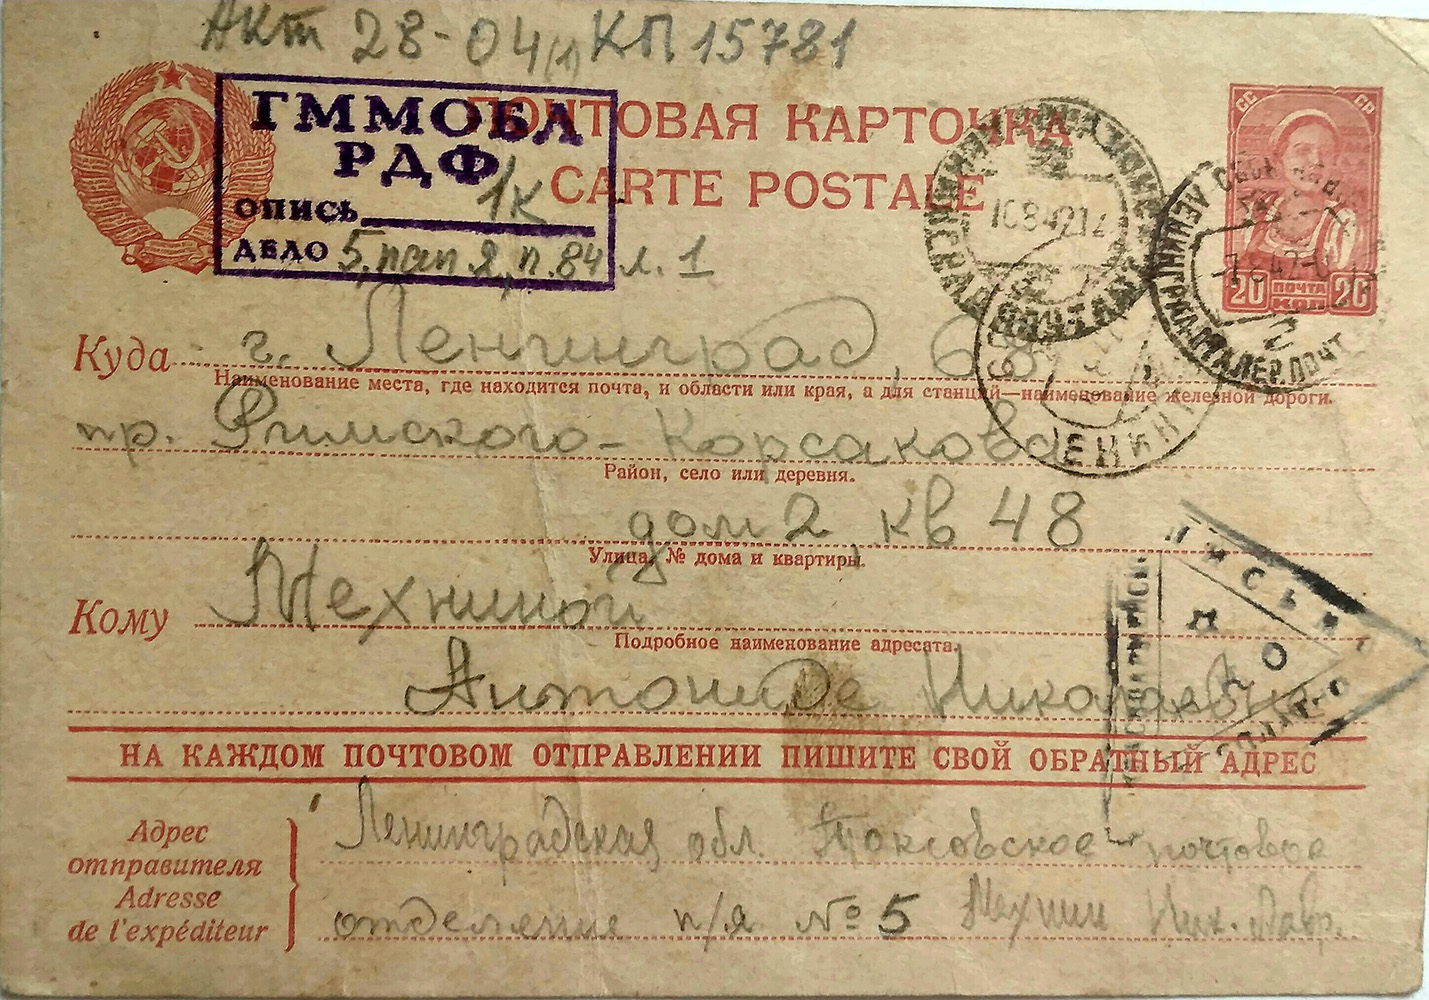 Акт 28-04(1) КП 15781
ГММОБА
РДФ
опись 1к
дело 5, пап. я, п. 84 л. 1
ПОЧТОВАЯ КАРТОЧКА
CARTE POSTALE
СС СР
20 ПОЧТА КОП 20
ЛЕНИНГРАД ПОЧТАМТ
10 8 42 12
ЛЕНИНГРАД
Куда г. Ленинград, 68
Наименование места, где находится почта, и области или края, а для станций—наименование железной дороги.
пр. Римского-Корсакова
Район, село или деревня.
дом 2, кв 48
Улица, № дома и квартиры.
Кому Мехниной
Подробное наименование адресата.
Антониде Николаевне
ПИСЬМО
НА КАЖДОМ ПОЧТОВОМ ОТПРАВЛЕНИИ ПИШИТЕ СВОЙ ОБРАТНЫЙ АДРЕС
Адрес
отправителя
Adresse
de l'expéditeur
Ленинградская обл. Токсовское почтовое
отделение п/я № 5 Мехнин Ник. Лавр.